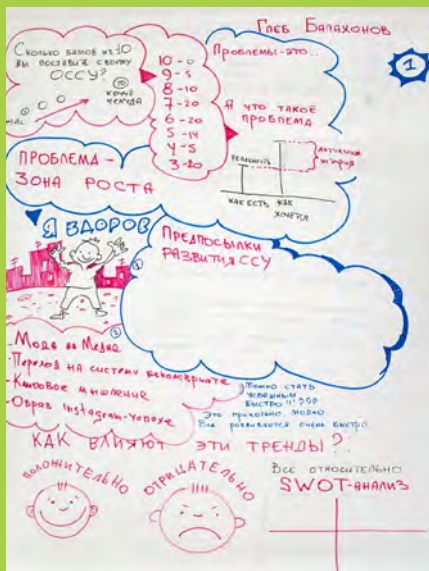 Глеб Балахонов
1
Сколько балов из 10
вы поставили своему
ОССУ?
10
круче
некуда
10 - 0
9 - 5
8 - 10
7 - 20
6 - 20
5 - 14
4 - 5
3 - 20
Проблемы - это...
А что такое
проблема
реальность
как есть
как
хочется
ПРОБЛЕМА -
ЗОНА РОСТА
Я ЗДОРОВ
Предпосылки
развития ССУ
- Мода на Медиа
- Переход на систему бакалавриата
- Клиповое мышление
- Образ instagram-успеха
Можно стать
успешным
быстро!!!
Это прикольно, модно
Все развивается очень быстро
КАК ВЛИЯЮТ ЭТИ ТРЕНДЫ?
положительно
отрицательно
Все относительно
SWOT-анализ